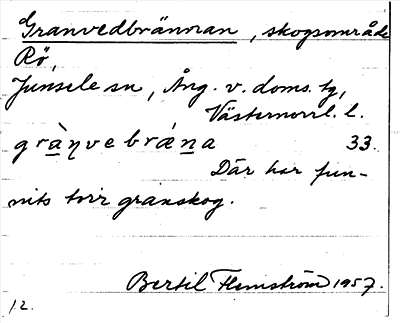 Granvedbrännan, skogsområde
Rö,
Junsele sn, Ång. v. doms. tg,
Västernorrl. l.
gràŋvebrǽna 33.
Där har fun-
nits torr granskog.
Bertil Flemström 1957.
12.